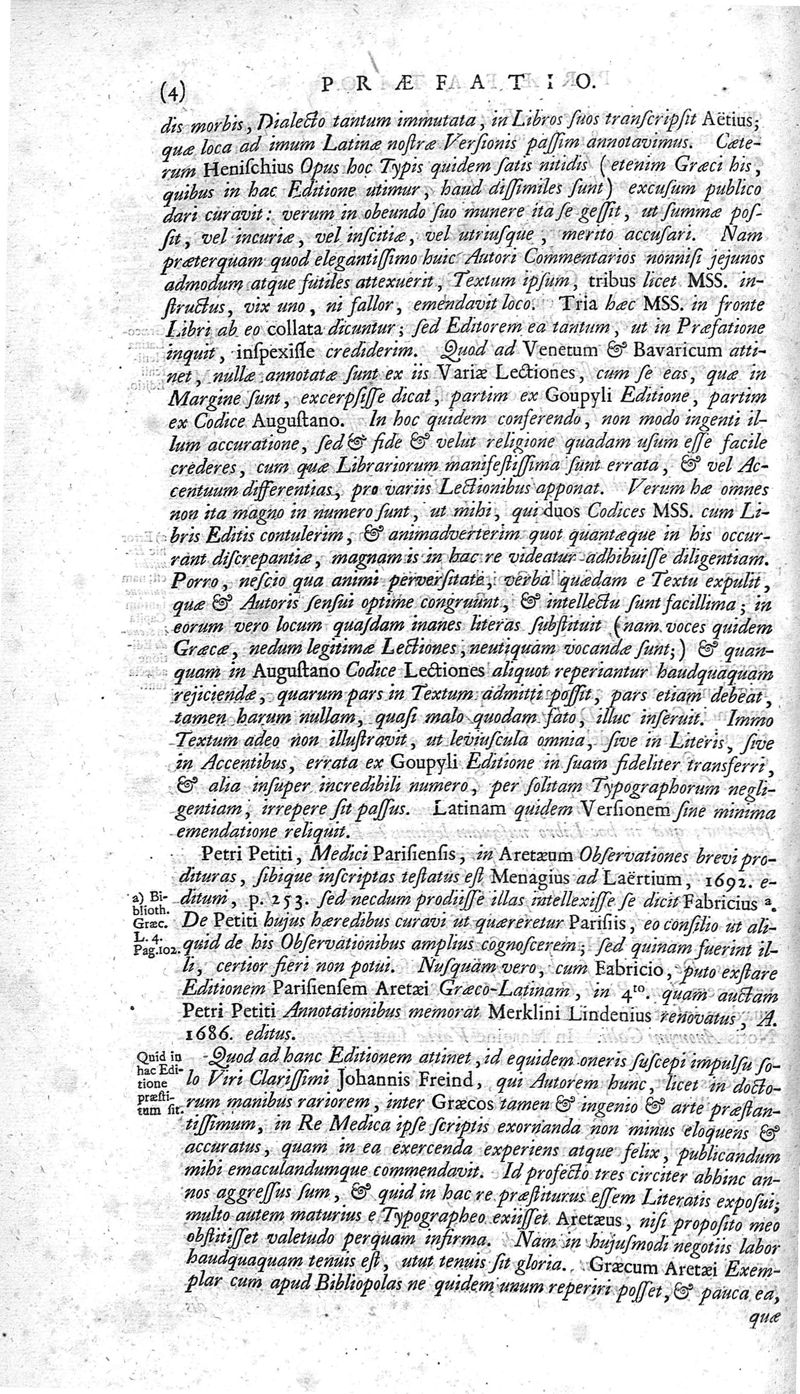 (4) PRÆFATIO.
dis morbis, Dialecto tantum immutata, in Libros ſuos tranſcripſit Aëtius;
quæ loca ad imum Latinæ noſtræ Verſionis paſſim annotavimus. Cæte-
rum Heniſchius Opus hoc Typis quidem ſatis nitidis (etenim Græci his,
quibus in hac Editione utimur, haud diſſimiles ſunt) excuſum publico
dari curavit: verum in obeundo ſuo munere ita ſe geſſit, ut ſummæ poſ-
ſit, vel incuriæ, vel inſcitiæ, vel utriuſque, merito accuſari. Nam
præterquam quod elegantiſſimo huic Autori Commentarios nonniſi jejunos
admodum atque futiles attexuerit, Textum ipſum, tribus licet MSS. in-
ſtructus, vix uno, ni fallor, emendavit loco. Tria hæc MSS. in fronte
Libri ab eo collata dicuntur; ſed Editorem ea tantum, ut in Præfatione
inquit, inſpexiſſe crediderim. Quod ad Venetum & Bavaricum atti-
net, nullæ annotatæ ſunt ex iis Variæ Lectiones, cum ſe eas, quæ in
Margine ſunt, excerpſiſſe dicat, partim ex Goupyli Editione, partim
ex Codice Auguſtano. In hoc quidem conferendo, non modo ingenti il-
lum accuratione, ſed & fide & velut religione quadam uſum eſſe facile
crederes, cum quæ Librariorum manifeſtiſſima ſunt errata, & vel Ac-
centuum differentias, pro variis Lectionibus apponat. Verum hæ omnes
non ita magno in numero ſunt, ut mihi, qui duos Codices MSS. cum Li-
bris Editis contulerim, & animadverterim quot quantæque in his occur-
rant diſcrepantiæ, magnam is in hac re videatur adhibuiſſe diligentiam.
Porro, neſcio qua animi perverſitate, verba quædam e Textu expulit,
quæ & Autoris ſenſui optime congruunt, & intellectu ſunt facillima; in
eorum vero locum quaſdam inanes literas ſubſtituit (nam voces quidem
Græcæ, nedum legitimæ Lectiones, neutiquam vocandæ ſunt;) & quan-
quam in Auguſtano Codice Lectiones aliquot reperiantur haudquaquam
rejiciendæ, quarum pars in Textum admitti poſſit, pars etiam debeat,
tamen harum nullam, quaſi malo quodam fato, illuc inſeruit. Immo
Textum adeo non illuſtravit, ut leviuſcula omnia, ſive in Literis, ſive
in Accentibus, errata ex Goupyli Editione in ſuam fideliter transferri,
& alia inſuper incredibili numero, per ſolitam Typographorum negli-
gentiam, irrepere ſit paſſus. Latinam quidem Verſionem ſine minima
emendatione reliquit.
Petri Petiti, Medici Pariſienſis, in Aretæum Obſervationes brevi pro-
dituras, ſibique inſcriptas teſtatus eſt Menagius ad Laërtium, 1692. e-
ditum, p. 253. ſed necdum prodiiſſe illas intellexiſſe ſe dicit Fabricius ª.
a) Bi-
blioth.
Græc.
L. 4.
Pag. 102.
De Petiti hujus hæredibus curavi ut quæreretur Pariſiis, eo conſilio ut ali-
quid de his Obſervationibus amplius cognoſcerem; ſed quinam fuerint il-
li, certior fieri non potui. Nuſquam vero, cum Fabricio, puto exſtare
Editionem Pariſienſem Aretæi Græco-Latinam, in 4ᵗᵒ. quam auctam
Petri Petiti Annotationibus memorat Merklini Lindenius renovatus, A.
1686. editus.
Quid in
hac Edi-
tione
præſti-
tum ſit.
Quod ad hanc Editionem attinet, id equidem oneris ſuſcepi impulſu ſo-
lo Viri Clariſſimi Johannis Freind, qui Autorem hunc, licet in docto-
rum manibus rariorem, inter Græcos tamen & ingenio & arte præſtan-
tiſſimum, in Re Medica ipſe ſcriptis exornanda non minus eloquens &
accuratus, quam in ea exercenda experiens atque felix, publicandum
mihi emaculandumque commendavit. Id profecto tres circiter abhinc an-
nos aggreſſus ſum, & quid in hac re præſtiturus eſſem Literatis expoſui;
multo autem maturius e Typographeo exiiſſet Aretæus, niſi propoſito meo
obſtitiſſet valetudo perquam infirma. Nam in hujuſmodi negotiis labor
haudquaquam tenuis eſt, utut tenuis ſit gloria. Græcum Aretæi Exem-
plar cum apud Bibliopolas ne quidem unum reperiri poſſet, & pauca ea,
quæ